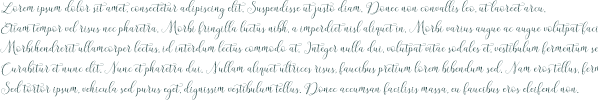 Lorem ipsum dolor sit amet, consectetur adipiscing elit. Suspendisse at justo diam. Donec non convallis leo, ut laoreet arcu.
Etiam tempor vel risus nec pharetra. Morbi fringilla luctus nibh, a imperdiet nisl aliquet in. Morbi varius augue ac augue volutpat
Morbi hendrerit ullamcorper lectus, id interdum lectus commodo at. Integer nulla dui, volutpat vitae sodales et, vestibulum fermentum
Curabitur et nunc elit. Nunc et pharetra dui. Nullam aliquet ultrices risus, faucibus pretium lorem bibendum sed. Nam eros tellus,
Sed tortor ipsum, vehicula sed purus eget, dignissim vestibulum tellus. Donec accumsan facilisis massa, eu faucibus eros eleifend non.